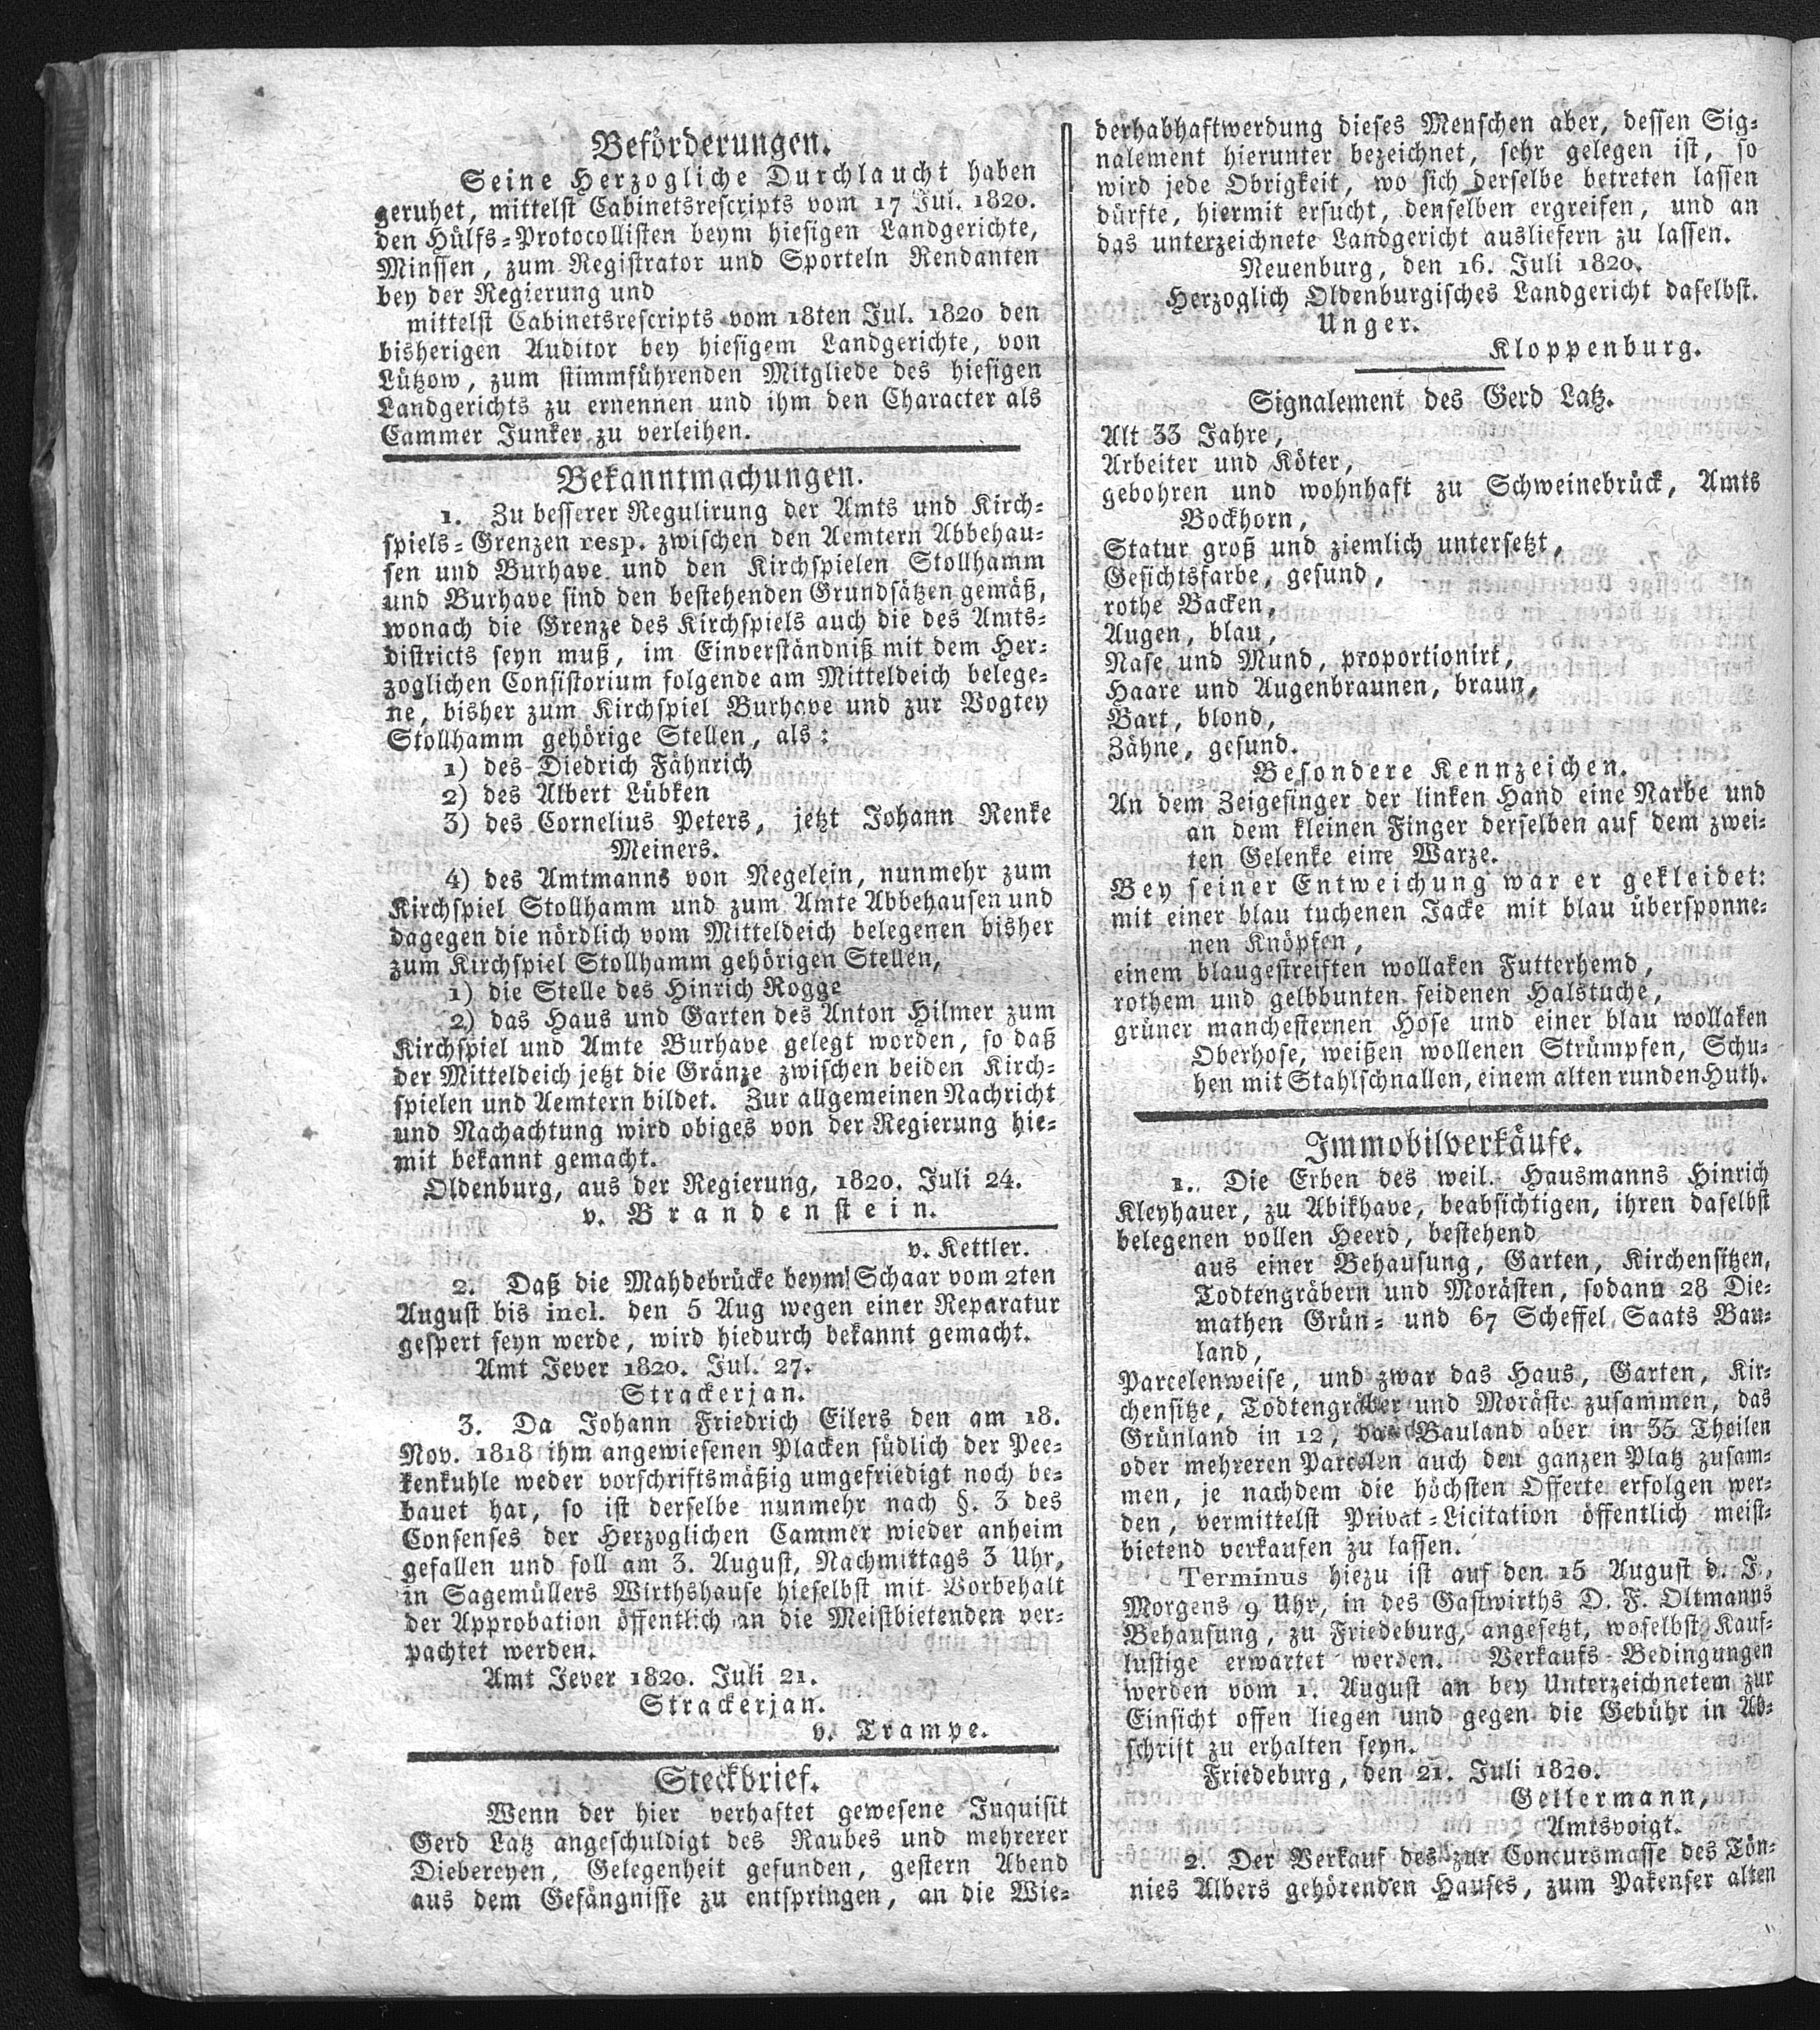 Beförderungen.
Seine Herzogliche Durchlaucht haben
geruhet, mittelst Cabinetsrescripts vom 17 Jul. 1820.
den Hülfs-Protocollisten beym hiesigen Landgerichte,
Minssen, zum Registrator und Sporteln Rendanten
bey der Regierung und
mittelst Cabinetsrescripts vom 18ten Jul. 1820 den
bisherigen Auditor bey hiesigem Landgerichte, von
Lützow, zum stimmführenden Mitgliede des hiesigen
Landgerichts zu ernennen und ihm den Character als
Cammer Junker zu verleihen.
Bekanntmachungen.
1. Zu besserer Regulirung der Amts und Kirch-
spiels-Grenzen resp. zwischen den Aemtern Abbehau-
sen und Burhave und den Kirchspielen Stollhamm
und Burhave sind den bestehenden Grundsätzen gemäß,
wonach die Grenze des Kirchspiels auch die des Amts-
districts seyn muß, im Einverständniß mit dem Her-
zoglichen Consistorium folgende am Mitteldeich belege-
ne, bisher zum Kirchspiel Burhave und zur Vogtey
Stollhamm gehörige Stellen, als:
1) des Diedrich Fähnrich
2) des Albert Lübken
3) des Cornelius Peters, jetzt Johann Renke
Meiners.
4) des Amtmanns von Negelein, nunmehr zum
Kirchspiel Stollhamm und zum Amte Abbehausen und
dagegen die nördlich vom Mitteldeich belegenen bisher
zum Kirchspiel Stollhamm gehörigen Stellen,
1) die Stelle des Hinrich Rogge
2) das Haus und Garten des Anton Hilmer zum
Kirchspiel und Amte Burhave gelegt worden, so daß
der Mitteldeich jetzt die Gränze zwischen beiden Kirch-
spielen und Aemtern bildet. Zur allgemeinen Nachricht
und Nachachtung wird obiges von der Regierung hie-
mit bekannt gemacht.
Oldenburg, aus der Regierung, 1820. Juli 24.
v. Brandenstein.
v. Kettler.
2. Daß die Mahdebrücke beym Schaar vom 2ten
August bis incl. den 5 Aug wegen einer Reparatur
gespert seyn werde, wird hiedurch bekannt gemacht.
Amt Jever 1820. Jul. 27.
Strackerjan.
3. Da Johann Friedrich Eilers den am 18.
Nov. 1818 ihm angewiesenen Placken südlich der Pee-
kenkuhle weder vorschriftsmäßig umgefriedigt noch be-
bauet hat, so ist derselbe nunmehr nach §. 3 des
Consenses der Herzoglichen Cammer wieder anheim
gefallen und soll am 3. August, Nachmittags 3 Uhr,
in Sagemüllers Wirthshause hieselbst mit Vorbehalt
der Approbation öffentlich an die Meistbietenden ver-
pachtet werden.
Amt Jever 1820. Juli 21.
Strackerjan.
v. Trampe.
Steckbrief.
Wenn der hier verhaftet gewesene Inquisit
Gerd Latz angeschuldigt des Raubes und mehrerer
Diebereyen, Gelegenheit gefunden, gestern Abend
aus dem Gefängnisse zu entspringen, an die Wie-
derhabhaftwerdung dieses Menschen aber, dessen Sig-
nalement hierunter bezeichnet, sehr gelegen ist, so
wird jede Obrigkeit, wo sich derselbe betreten lassen
dürfte, hiermit ersucht, denselben ergreifen, und an
das unterzeichnete Landgericht ausliefern zu lassen.
Neuenburg, den 16. Juli 1820.
Herzoglich Oldenburgisches Landgericht daselbst.
Unger.
Kloppenburg.
Signalement des Gerd Latz.
Alt 33 Jahre,
Arbeiter und Köter,
gebohren und wohnhaft zu Schweinebrück, Amts
Bockhorn,
Statur groß und ziemlich untersetzt,
Gesichtsfarbe, gesund,
rothe Backen,
Augen, blau,
Nase und Mund, proportionirt,
Haare und Augenbraunen, braun,
Bart, blond,
Zähne, gesund.
Besondere Kennzeichen.
An dem Zeigefinger der linken Hand eine Narbe und
an dem kleinen Finger derselben auf dem zwei-
ten Gelenke eine Warze.
Bey seiner Entweichung war er gekleidet:
mit einer blau tuchenen Jacke mit blau übersponne-
nen Knöpfen,
einem blaugestreiften wollaken Futterhemd,
rothem und gelbbunten seidenen Halstuche,
grüner manchesternen Hose und einer blau wollaken
Oberhose, weißen wollenen Strümpfen, Schu-
hen mit Stahlschnallen, einem alten runden Huth.
Immobilverkäufe.
1. Die Erben des weil. Hausmanns Hinrich
Kleyhauer, zu Abikhave, beabsichtigen, ihren daselbst
belegenen vollen Heerd, bestehend
aus einer Behausung, Garten, Kirchensitzen,
Todtengräbern und Morästen, sodann 28 Die-
mathen Grün- und 67 Scheffel Saats Bau-
land,
Parcelenweise, und zwar das Haus, Garten, Kir-
chensitze, Todtengräber und Moräste zusammen, das
Grünland in 12, das Bauland aber in 35 Theilen
oder mehreren Parcelen auch den ganzen Platz zusam-
men, je nachdem die höchsten Offerte erfolgen wer-
den, vermittelst Privat-Licitation öffentlich meist-
bietend verkaufen zu lassen.
Terminus hiezu ist auf den 15 August d. J.,
Morgens 9 Uhr, in des Gastwirths O. F. Oltmanns
Behausung, zu Friedeburg, angesetzt, woselbst Kauf-
lustige erwartet werden. Verkaufs-Bedingungen
werden vom 1. August an bey Unterzeichnetem zur
Einsicht offen liegen und gegen die Gebühr in Ab-
schrift zu erhalten seyn.
Friedeburg, den 21. Juli 1820.
Gellermann,
Amtsvoigt.
2. Der Verkauf des zur Concursmasse des Tön-
nies Albers gehörenden Hauses, zum Pakenser alten